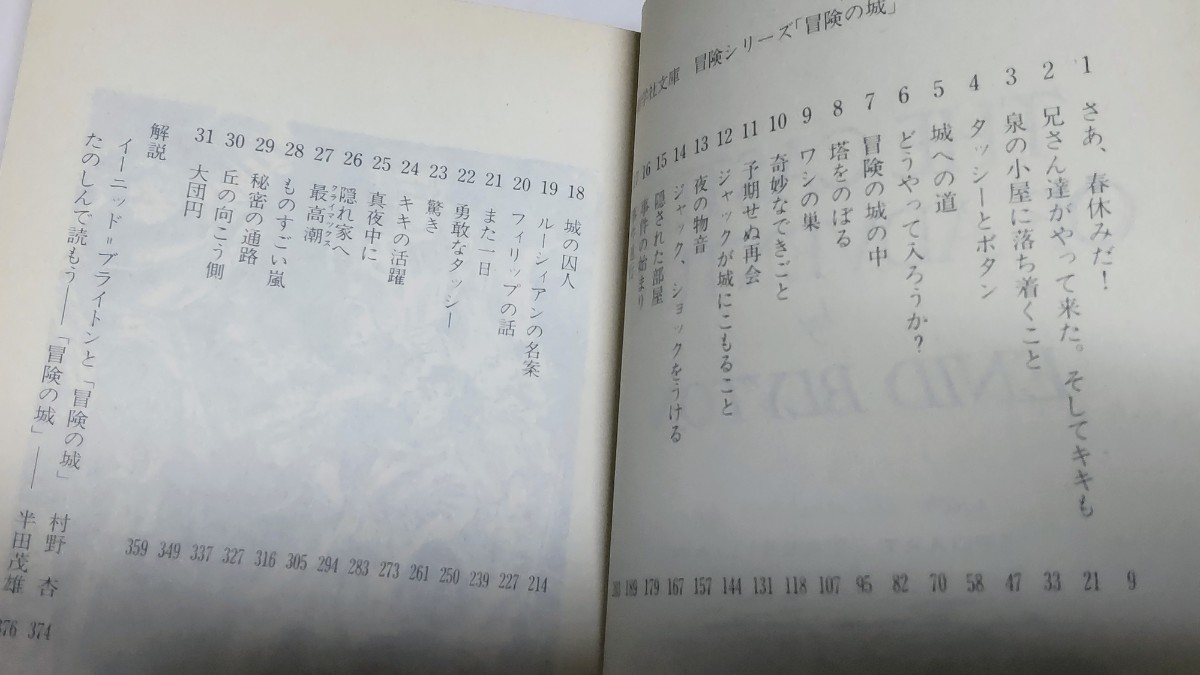 社文庫 冒険シリーズ「冒険の城」
1 さあ、春休みだ！ 9
2 兄さん達がやって来た。そしてキキも 21
3 泉の小屋に落ち着くこと 33
4 タッシーとボタン 47
5 城への道 58
6 どうやって入ろうか？ 70
7 冒険の城の中 82
8 塔をのぼる 95
9 ワシの巣 107
10 奇妙なできごと 118
11 予期せぬ再会 131
12 ジャックが城にこもること 144
13 夜の物音 157
14 ジャック、ショックをうける 167
15 隠された部屋 179
16 事件の始まり 189
18 城の囚人 214
19 ルーシィアンの名案 227
20 フィリップの話 239
21 また一日 250
22 勇敢なタッシー 261
23 驚き 273
24 キキの活躍 283
25 真夜中に 294
26 隠れ家へ 305
27 最高潮 クライマックス 316
28 ものすごい嵐 327
29 秘密の通路 337
30 丘の向こう側 349
31 大団円 359
解説
イーニッド＝ブライトンと「冒険の城」 村野 杏 374
たのしんで読もう——「冒険の城」—— 半田茂雄 376